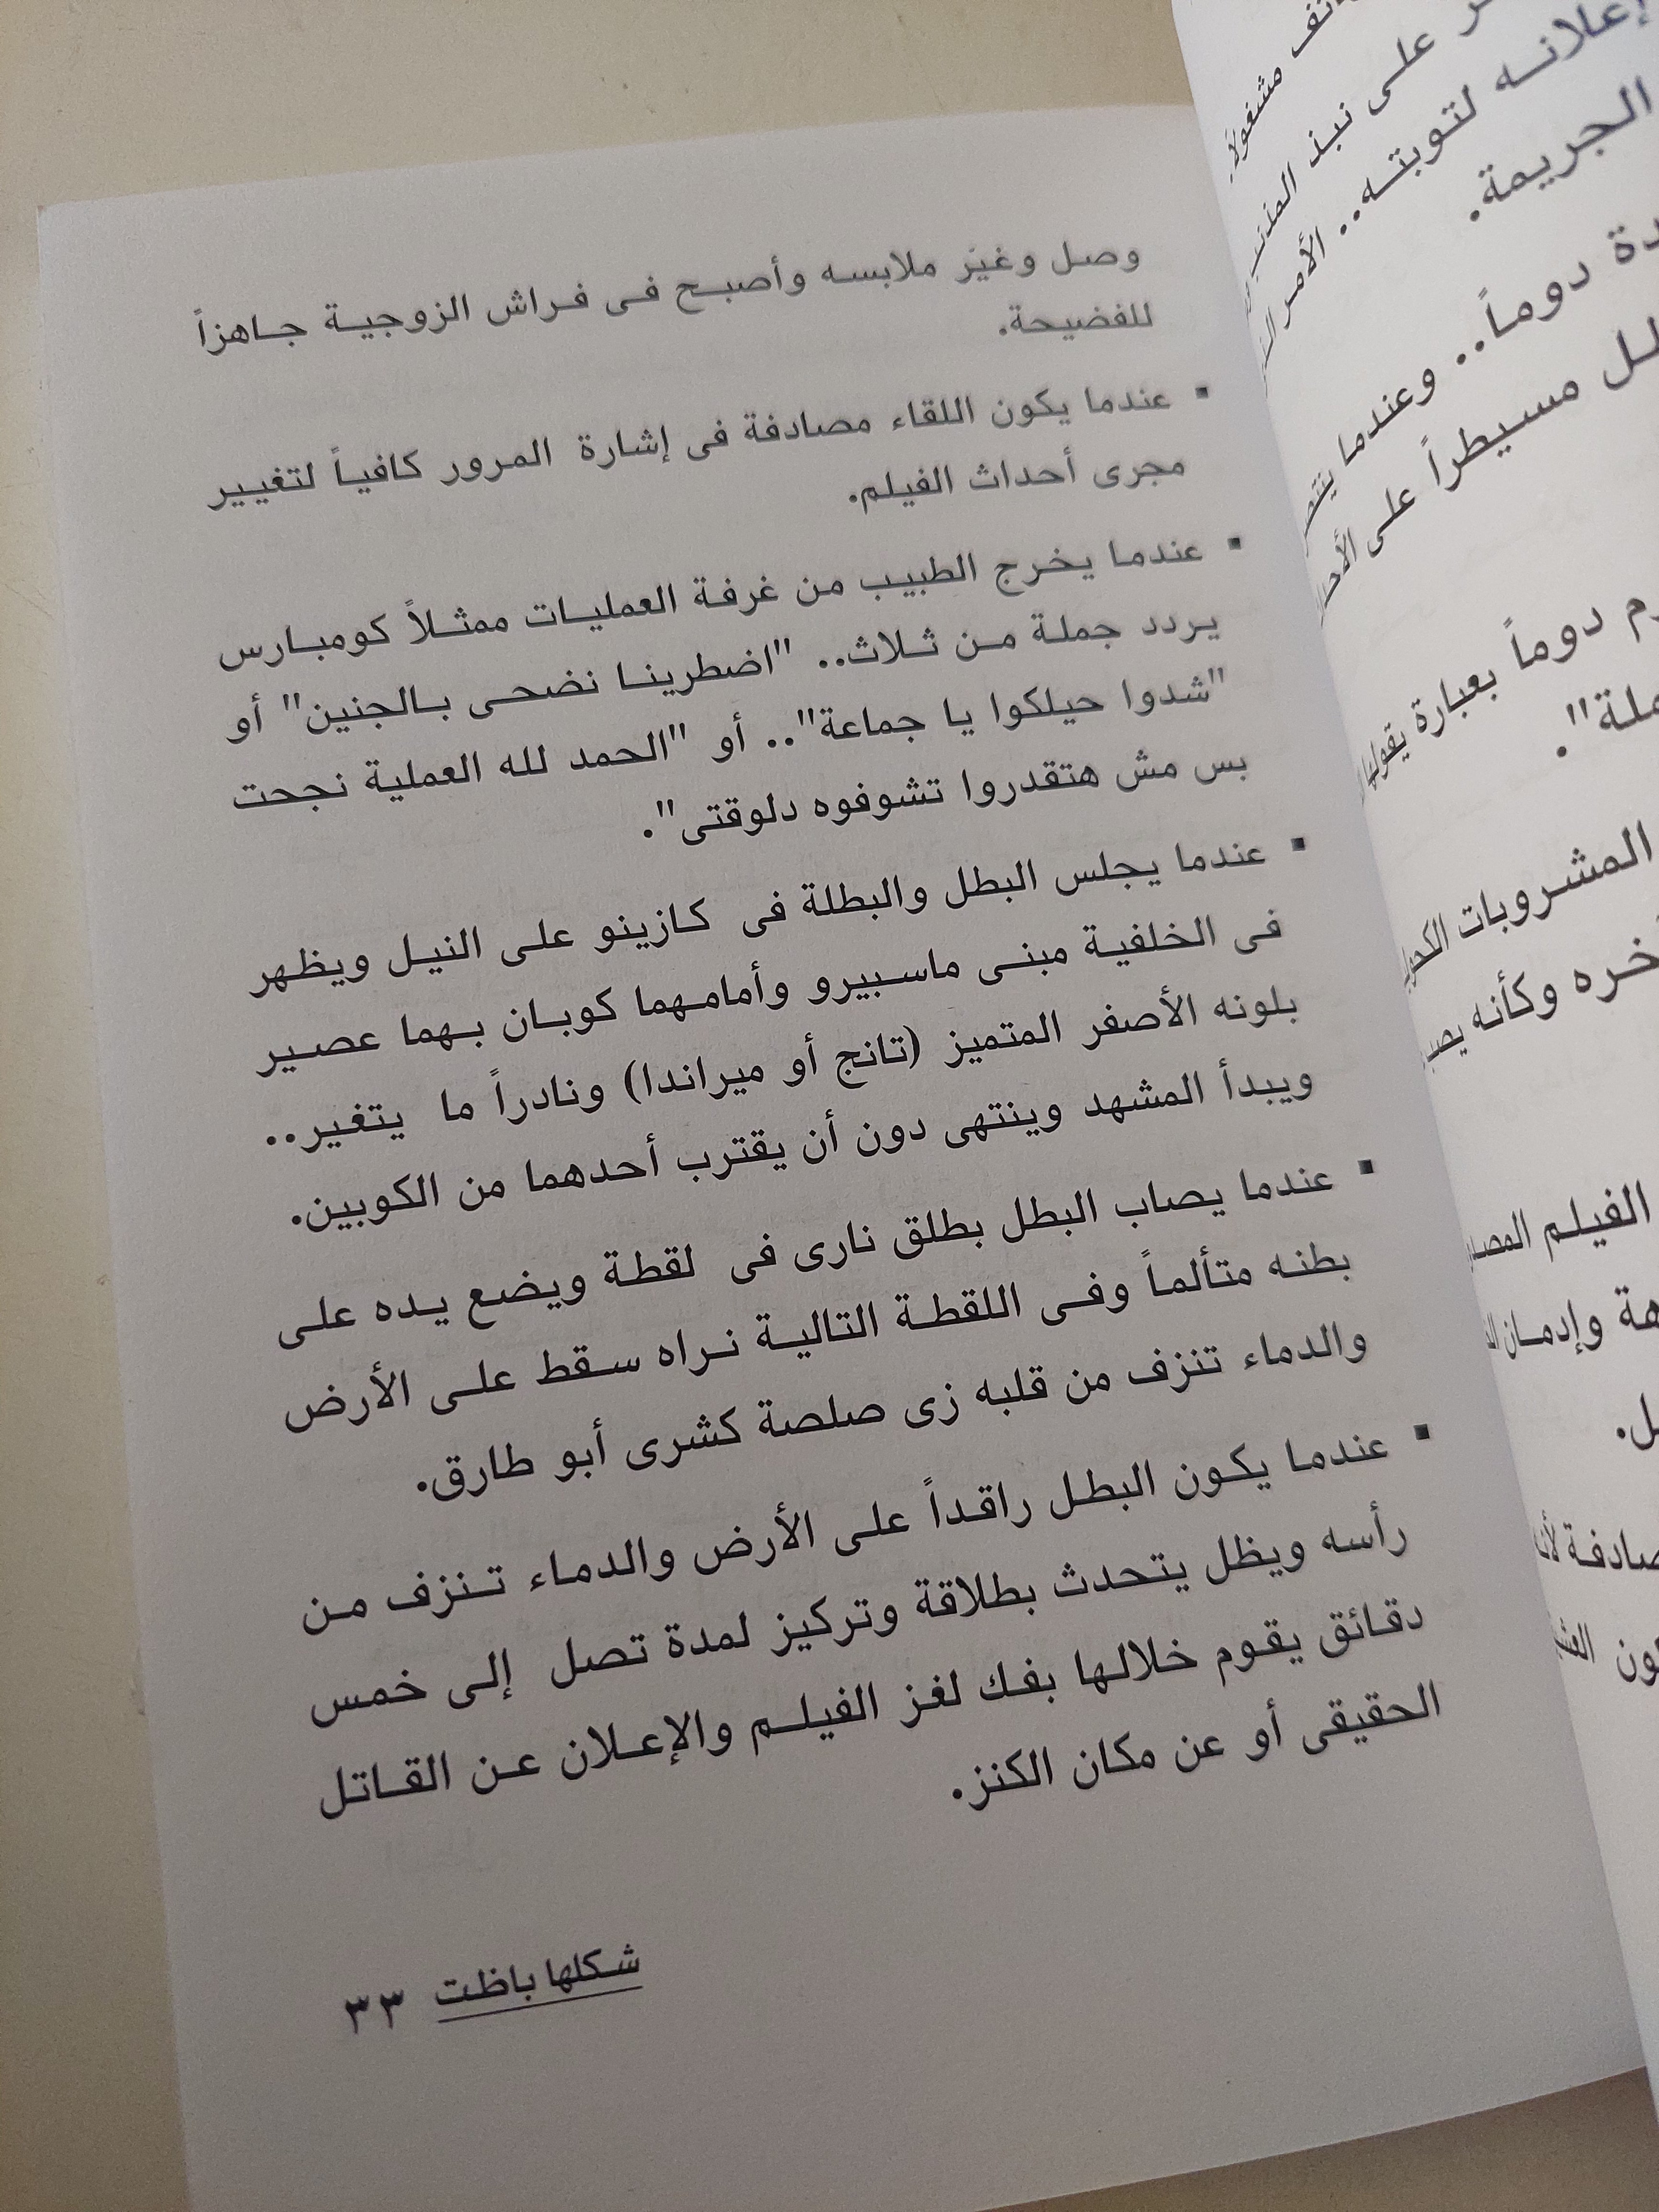 وصل وغيّر ملابسه وأصبح فى فراش الزوجية جاهزاً
للفضيحة.
▪ عندما يكون اللقاء مصادفة فى إشارة المرور كافياً لتغيير
مجرى أحداث الفيلم.
▪ عندما يخرج الطبيب من غرفة العمليات ممثلاً كومبارس
يردد جملة من ثلاث.. "اضطرينا نضحى بالجنين" أو
"شدوا حيلكوا يا جماعة".. أو "الحمد لله العملية نجحت
بس مش هتقدروا تشوفوه دلوقتى".
▪ عندما يجلس البطل والبطلة فى كازينو على النيل ويظهر
فى الخلفية مبنى ماسبيرو وأمامهما كوبان بهما عصير
بلونه الأصفر المتميز (تانج أو ميراندا) ونادراً ما يتغير..
ويبدأ المشهد وينتهى دون أن يقترب أحدهما من الكوبين.
▪ عندما يصاب البطل بطلق نارى فى لقطة ويضع يده على
بطنه متألماً وفى اللقطة التالية نراه سقط على الأرض
والدماء تنزف من قلبه زى صلصة كشرى أبو طارق.
▪ عندما يكون البطل راقداً على الأرض والدماء تنزف من
رأسه ويظل يتحدث بطلاقة وتركيز لمدة تصل إلى خمس
دقائق يقوم خلالها بفك لغز الفيلم والإعلان عن القاتل
الحقيقى أو عن مكان الكنز.
شكلها باظت ٣٣
مشغولاً
على نبذ
إعلانه لتوبته.. الأمر
الجريمة.
دوماً.. وعندما
مسيطراً على
دوماً بعبارة يقولها
المشروبات
وكأنه
الفيلم
وإدمان